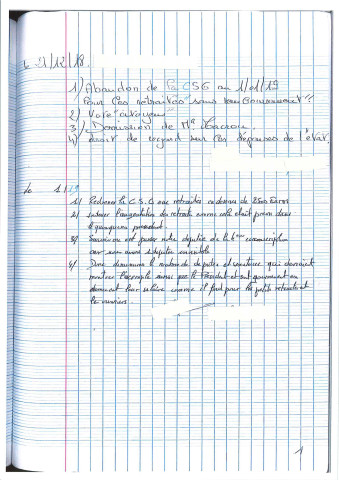 Le 21/12/18.
1) Abandon de la CSG au 1/01/19
Pour les retraités sans
2) Vote citoyen
3) Démission de Mr Macron.
4) droit de regard sur les dépenses de l'état.
le 1/19
1/ Redonner la C.S.G aux retraités en dessous de 2500 Euros
2/ indexer l'augmentation des retraites comme cela était prévu dans
le quinquennat précédent.
3/ est passée notre députée de la 6ème circonscription
car nous avons députée
4/ Donc diminuer le nombre de députés et sénateurs qui devraient
montrer l'exemple ainsi que le Président et son gouvernement en
donnant leur salaire comme il faut pour les petits retraités et
les ouvriers.
1